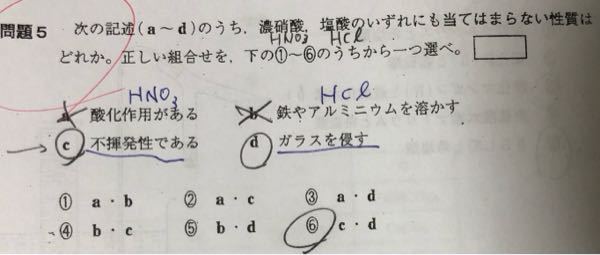 問題5 次の記述(a～d)のうち,濃硝酸,塩酸のいずれにも当てはまらない性質は
HNO3 HCl
どれか。正しい組合せを,下の①～⑥のうちから一つ選べ。
HNO3 HCl
a 酸化作用がある b 鉄やアルミニウムを溶かす
c 不揮発性である d ガラスを侵す
① a・b ② a・c ③ a・d
④ b・c ⑤ b・d ⑥ c・d